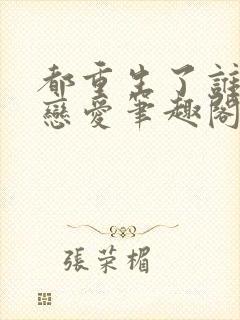 都重生了誰
戀愛筆趣閣
張荣楣